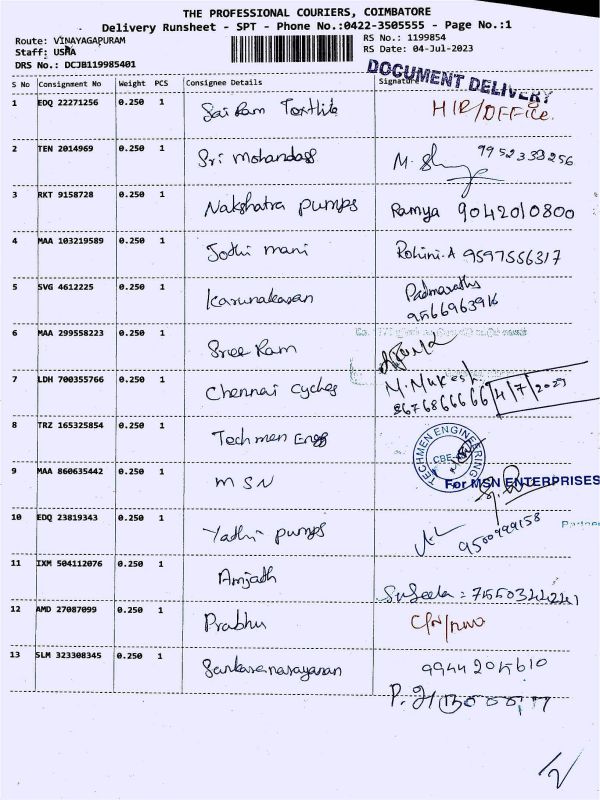 THE PROFESSIONAL COURIERS, COIMBATORE
Delivery Runsheet - SPT - Phone No.:0422-3505555 - Page No.:1
Route: VINAYAGAPURAM
RS No.: 1199854
Staff: USHA
RS Date: 04-Jul-2023
DRS No.: DCJB119985401
DOCUMENT DELIVERY
S No Consignment No Weight PCS Consignee Details Signature
1 EDQ 22271256 0.250 1 Sai Ram Textile
2 TEN 2014969 0.250 1 Sri Mohandass M. 9952333256
3 RKT 9158728 0.250 1 Nakshatra pumps Ramya 9042010800
4 MAA 103219589 0.250 1 Jothi mani Rohini.A 9597556317
5 SVG 4612225 0.250 1 Karunakaran Padmavathy
9566963916
6 MAA 299558223 0.250 1 Sree Ram
7 LDH 700355766 0.250 1 Chennai Cycles M. Mukesh.
8676866666 4/7/2023
8 TRZ 165325854 0.250 1 Techmen Engg
TECHMEN ENGINEERING
CBE
9 MAA 860635442 0.250 1 MSN
For MSN ENTERPRISES
10 EDQ 23819343 0.250 1 Yadhi pumps 9500999158
Partner
11 IXM 504112076 0.250 1 Amjath
12 AMD 27087099 0.250 1 Prabhu
13 SLM 323308345 0.250 1 Sankaranarayanan